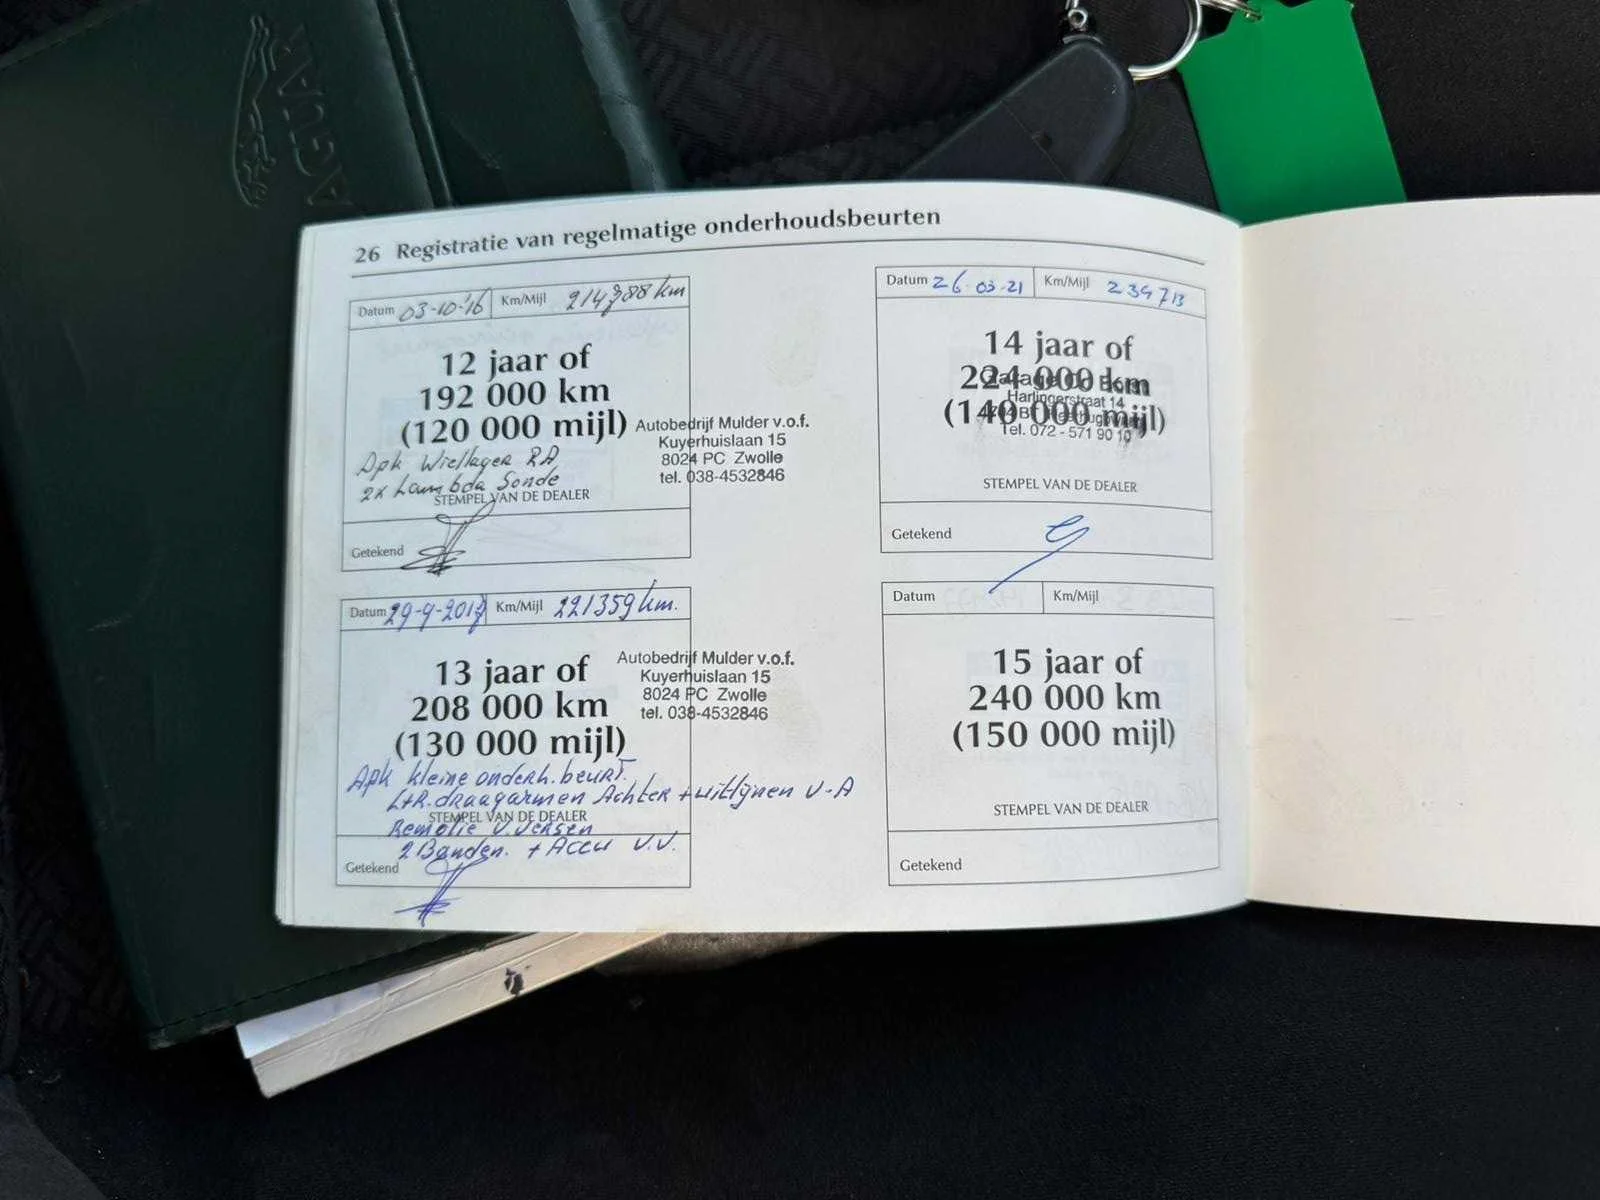 JAGUAR
26 Registratie van regelmatige onderhoudsbeurten
Datum 03-10-'16 Km/Mijl 214788 km
12 jaar of
192 000 km
(120 000 mijl)
Autobedrijf Mulder v.o.f.
Kuyerhuislaan 15
8024 PC Zwolle
tel. 038-4532846
Apk Wiellager RA
2x Lambda Sonde
STEMPEL VAN DE DEALER
Getekend
Datum 29-9-2017 Km/Mijl 221359 km.
13 jaar of
208 000 km
(130 000 mijl)
Autobedrijf Mulder v.o.f.
Kuyerhuislaan 15
8024 PC Zwolle
tel. 038-4532846
Apk kleine onderh.beurt.
L+R.draagarmen Achter + uitlijnen V-A
STEMPEL VAN DE DEALER
Remolie V.Versen
2 Banden. + Accu V.V.
Getekend
Datum 26-03-21 Km/Mijl 234713
14 jaar of
224 000 km
(140 000 mijl)
Garage
Harlingerstraat 14
Tel. 072 - 571 90 10
STEMPEL VAN DE DEALER
Getekend
Datum Km/Mijl
15 jaar of
240 000 km
(150 000 mijl)
STEMPEL VAN DE DEALER
Getekend